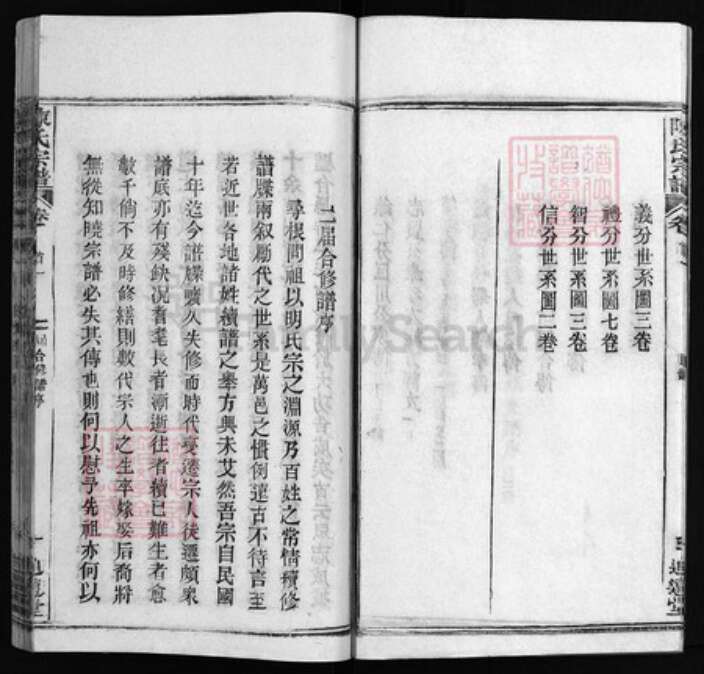 義分世系圖三卷
禮分世系圖七卷
智分世系圖三卷
信分世系圖二卷
陳氏宗譜
卷首一
二届合修譜序
尋根問祖以明氏宗之淵源乃百姓之常情續修
譜牒兩叙勵代之世系是萬邑之慣例遠古不待言至
若近世各地諸姓續譜之舉方興未艾然吾宗自民國
十年迄今譜牒曠久失修而時代变遷宗人徙遷頗衆
譜底亦有殘缺况耆耄長者漸逝往者續已難生者愈
數千倘不及時修繕則数代宗人之生卒嫁娶后裔將
無從知曉宗譜必失其傳也則何以慰予先祖亦何以
陳氏宗譜
卷首一
二届合修譜序
一
FamilySearch